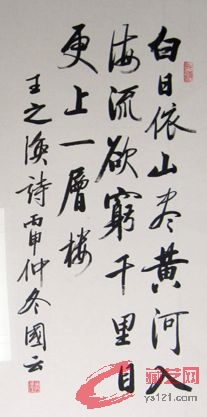 白日依山尽黄河入
海流欲窮千里目
更上一層楼
王之渙詩丙申仲冬國云
藏艺网
ys121.com